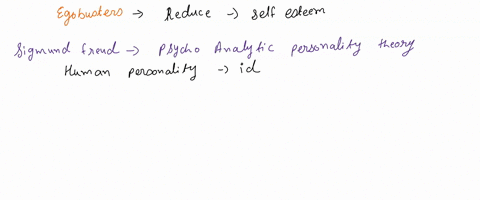 Egobusters → Reduce → self esteem
Sigmund freud → Psycho Analytic personality theory
Human personality → id